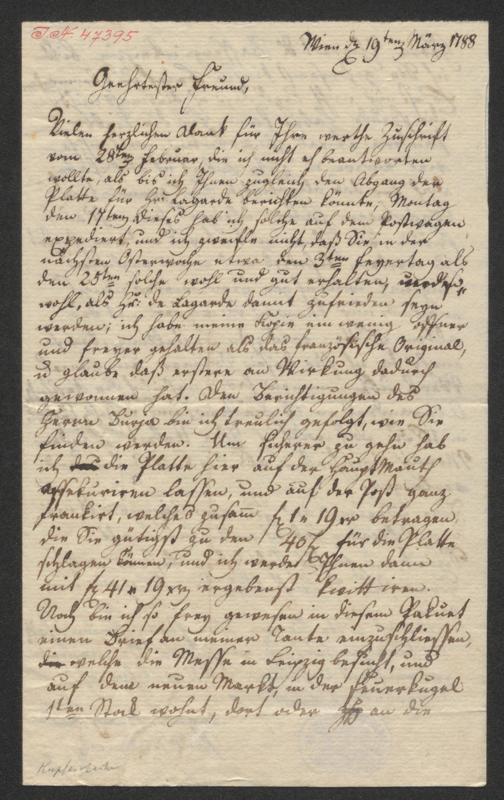 J.N. 47395
Wien d. 19ten März 1788
Geehrtester Freund,
Vielen herzlichen Dank für Ihre werthe Zuschrift
vom 28ten Februar, die ich nicht eh beantworten
wollte, als bis ich Ihnen zugleich den Abgang der
Platte für Hr: Lagarde berichten könnte, Montag
den 17ten dieses hab ich solche auf dem Postwagen
expediert, und ich zweifle nicht, daß Sie, in der
nächsten Osterwoche etwa den 3ten Feyertag als
den 25ten solche wohl und gut erhalten, werden so-
wohl, als Hr: de Lagarde damit zufrieden seyn
werden; ich habe meine Kopie ein wenig offner
und freyer gehalten als das französische Original,
u glaube daß erstere an Wirkung dadurch
gewonnen hat. Den Berichtigungen des
Herrn Bursa bin ich treulich gefolgt, wie Sie
finden werden. Um sicherer zu gehn hab
ich die Platte hier auf der Haupt Mauth
assekuriren lassen, und auf der Post ganz
frankirt, welches zusamm f 1 " 19 xr betragen
die Sie gütigst zu den 40 f für die Platte
schlagen können, und ich werde Ihnen dann
mit f 41 " 19 xr ergebenst kwittiren.
Noch bin ich so frey gewesen in diesem Paket
einen Brief an meiner Tante einzuschliessen,
welche die Messe in Leipzig besucht, und
auf dem neuen Markt, in der Feuerkugel
1ten Stock wohnt, dort oder an die